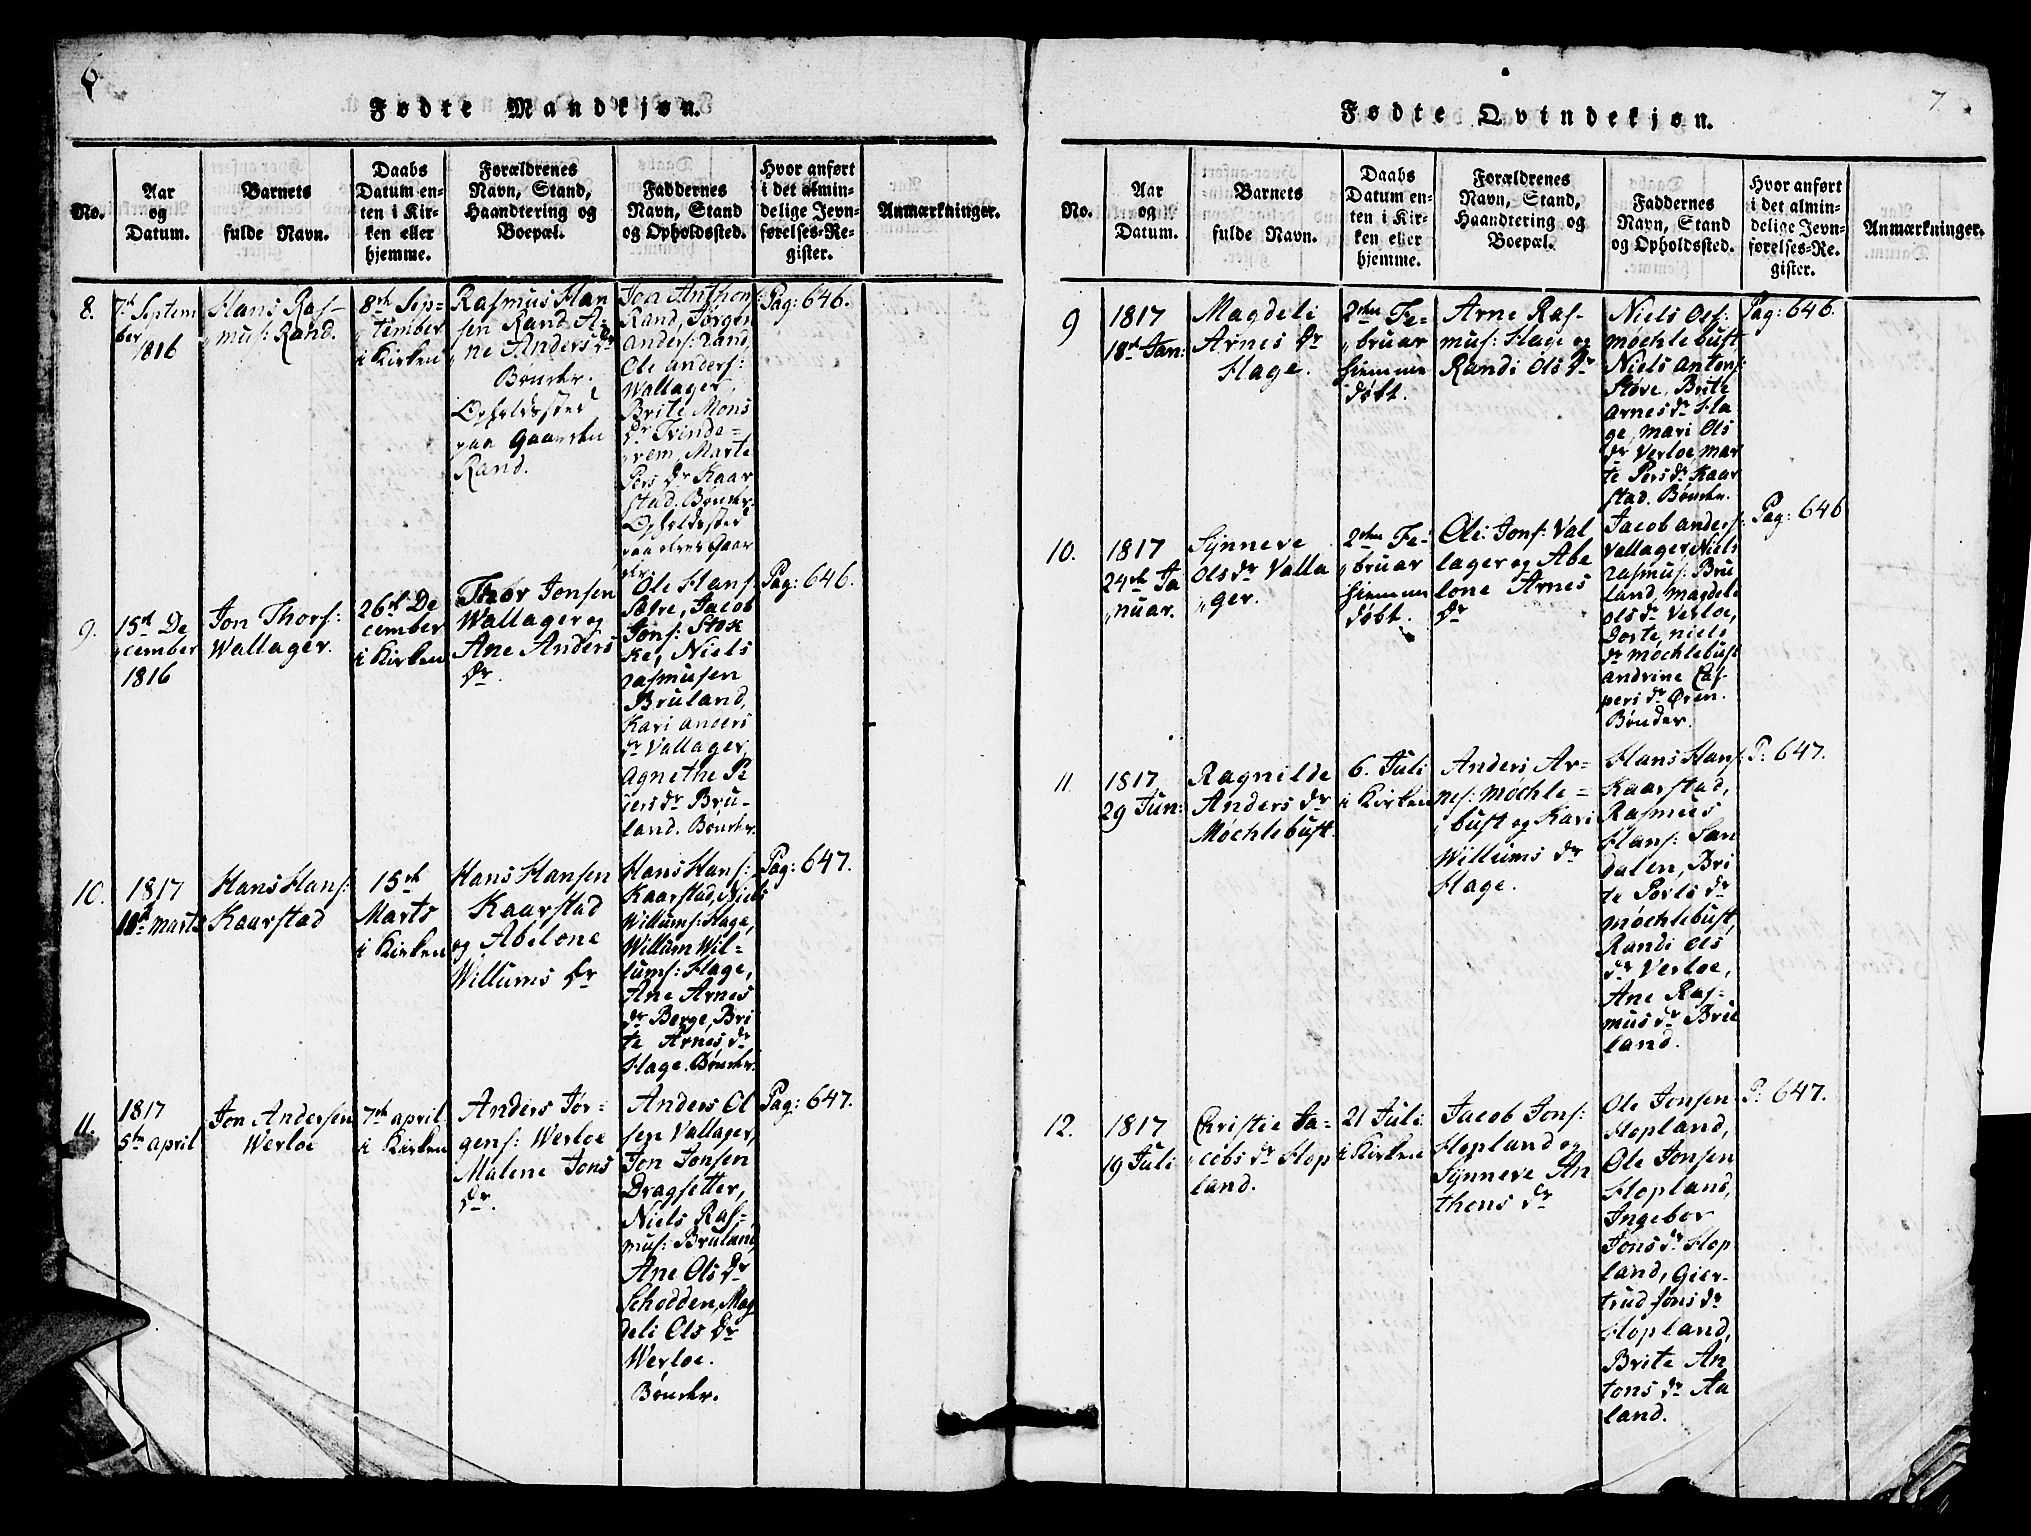 6
Fødte Mandkjøn.
No.
Aar
og
Datum.
Barnets
fulde Navn.
Daabs
Datum en-
ten i Kir-
ken eller
hjemme.
Forældrenes
Navn, Stand,
Haandtering og
Boepæl.
Faddernes
Navn, Stand
og Opholdssted.
Hvor anført
i det almin-
delige Jevn-
førelses-Re-
gister.
Anmærkninger.
8.
7de Septem
ber
1816
Hans Ras-
mus: Rand.
8de Sep-
tember
i Kirken
Rasmus Han
sen Rand A-
ne Anders Dr
Bønder.
Opholdssted
paa Gaarden
Rand.
Jon Anthons:
Rand, Jørgen
anders: rand,
Ole anders:
Wallager,
Brite Mons
Dr Tvinde-
rem, Marte
Pers Dr Kaar
stad. Bønder.
Opholdssted
paa deres Gaar
der.
Pag: 646.
9.
15de De
cember
1816
Jon Thors:
Wallager.
26de De
cember
i Kirken
Thor Jonsen
Wallager og
Ane Anders
Dr.
Ole Hans:
Sætre, Jacob
Jons: Stok
ke, Niels
rasmusen
Bruland,
Kari anders
dr Vallager,
Agnethe Pe
ders dr Bru-
land. Bønder.
Pag: 646.
10.
1817
10de Marts
Hans Hans:
Kaarstad
15de
Marts
i Kirken
Hans Hansen
Kaarstad
og Abelone
Willums Dr
Hans Hans:
Kaarstad, Niels
Willums: Hage,
Willum Wil-
lums: Hage,
Ane Arnes
dr Berge, Bri
te Arnes dr
Hage. Bønder.
Pag: 647.
11.
1817
5te april
Jon Andersen
Werloe
7de april
i Kirken
Anders Jør-
gens: Werloe
Malene Jons
Dr.
Anders Ol
sen Vallager,
Jon Jonsen
Dragsetter,
Niels Ras-
mus: Bruland,
Ane Ols Dr
Schodden, Mag
deli Ols Dr
Werloe.
Bønder.
Pag: 647.
7.
Fødte Qvindekjøn.
No.
Aar
og
Datum.
Barnets
fulde Navn.
Daabs
Datum en-
ten i Kir-
ken eller
hjemme.
Forældrenes
Navn, Stand,
Haandtering og
Boepæl.
Faddernes
Navn, Stand
og Opholdssted.
Hvor anført
i det almin-
delige Jevn-
førelses-Re-
gister.
Anmærkninger.
9
1817
18de Jan:
Magdeli
Arnes Dr
Hage.
2den Fe-
bruar
hiemme
døbt.
Arne Ras-
mus: Hage og
Randi Ols Dr
Niels Ols:
møchlebust
Niels antons:
Støve, Brite
arnes dr Ha
ge, mari Ols
dr Verloe mar
te Pers dr Kaar
stad. Bønder.
Pag: 646.
10.
1817
24de Ja
nuar.
Synneve
Ols dr Valla
ger.
2den Fe-
bruar
hiemme
døbt.
Ole Jons: Val
lager og Abe
lone Arnes
Dr
Jacob anders:
Vallager, Niels
rasmus: Bru
land, magdeli
ols dr Verloe,
Dorte niels
dr møchlebust
andrine Cas-
pers dr Øren.
Bønder.
Pag: 646
11
1817
29 Jun:
Ragnilde
Anders dr
Møchlebust.
6. Juli
i Kirken
Anders Ar-
nes: møchle-
bust og Kari
Willums dr
Hage.
Hans Hans:
Kaarstad,
Rasmus
Hans: San
dalen, Bri
te Perls dr
møchlebust,
Randi Ols
dr Verloe,
Ane Ras-
mus dr Bru
land.
P: 647.
12.
1817
19 Juli
Christie Ja-
cobs dr Hop
land.
21 Juli
i Kirken
Jacob Jons:
Hopland og
Synneve An
thons dr
Ole Jonsen
Hopland,
Ole Jonsen
Hopland,
Ingebor
Jons dr Hop
land, Gier-
trud Jons dr
Hopland,
Brite An
tons dr Aa
land.
P: 647.